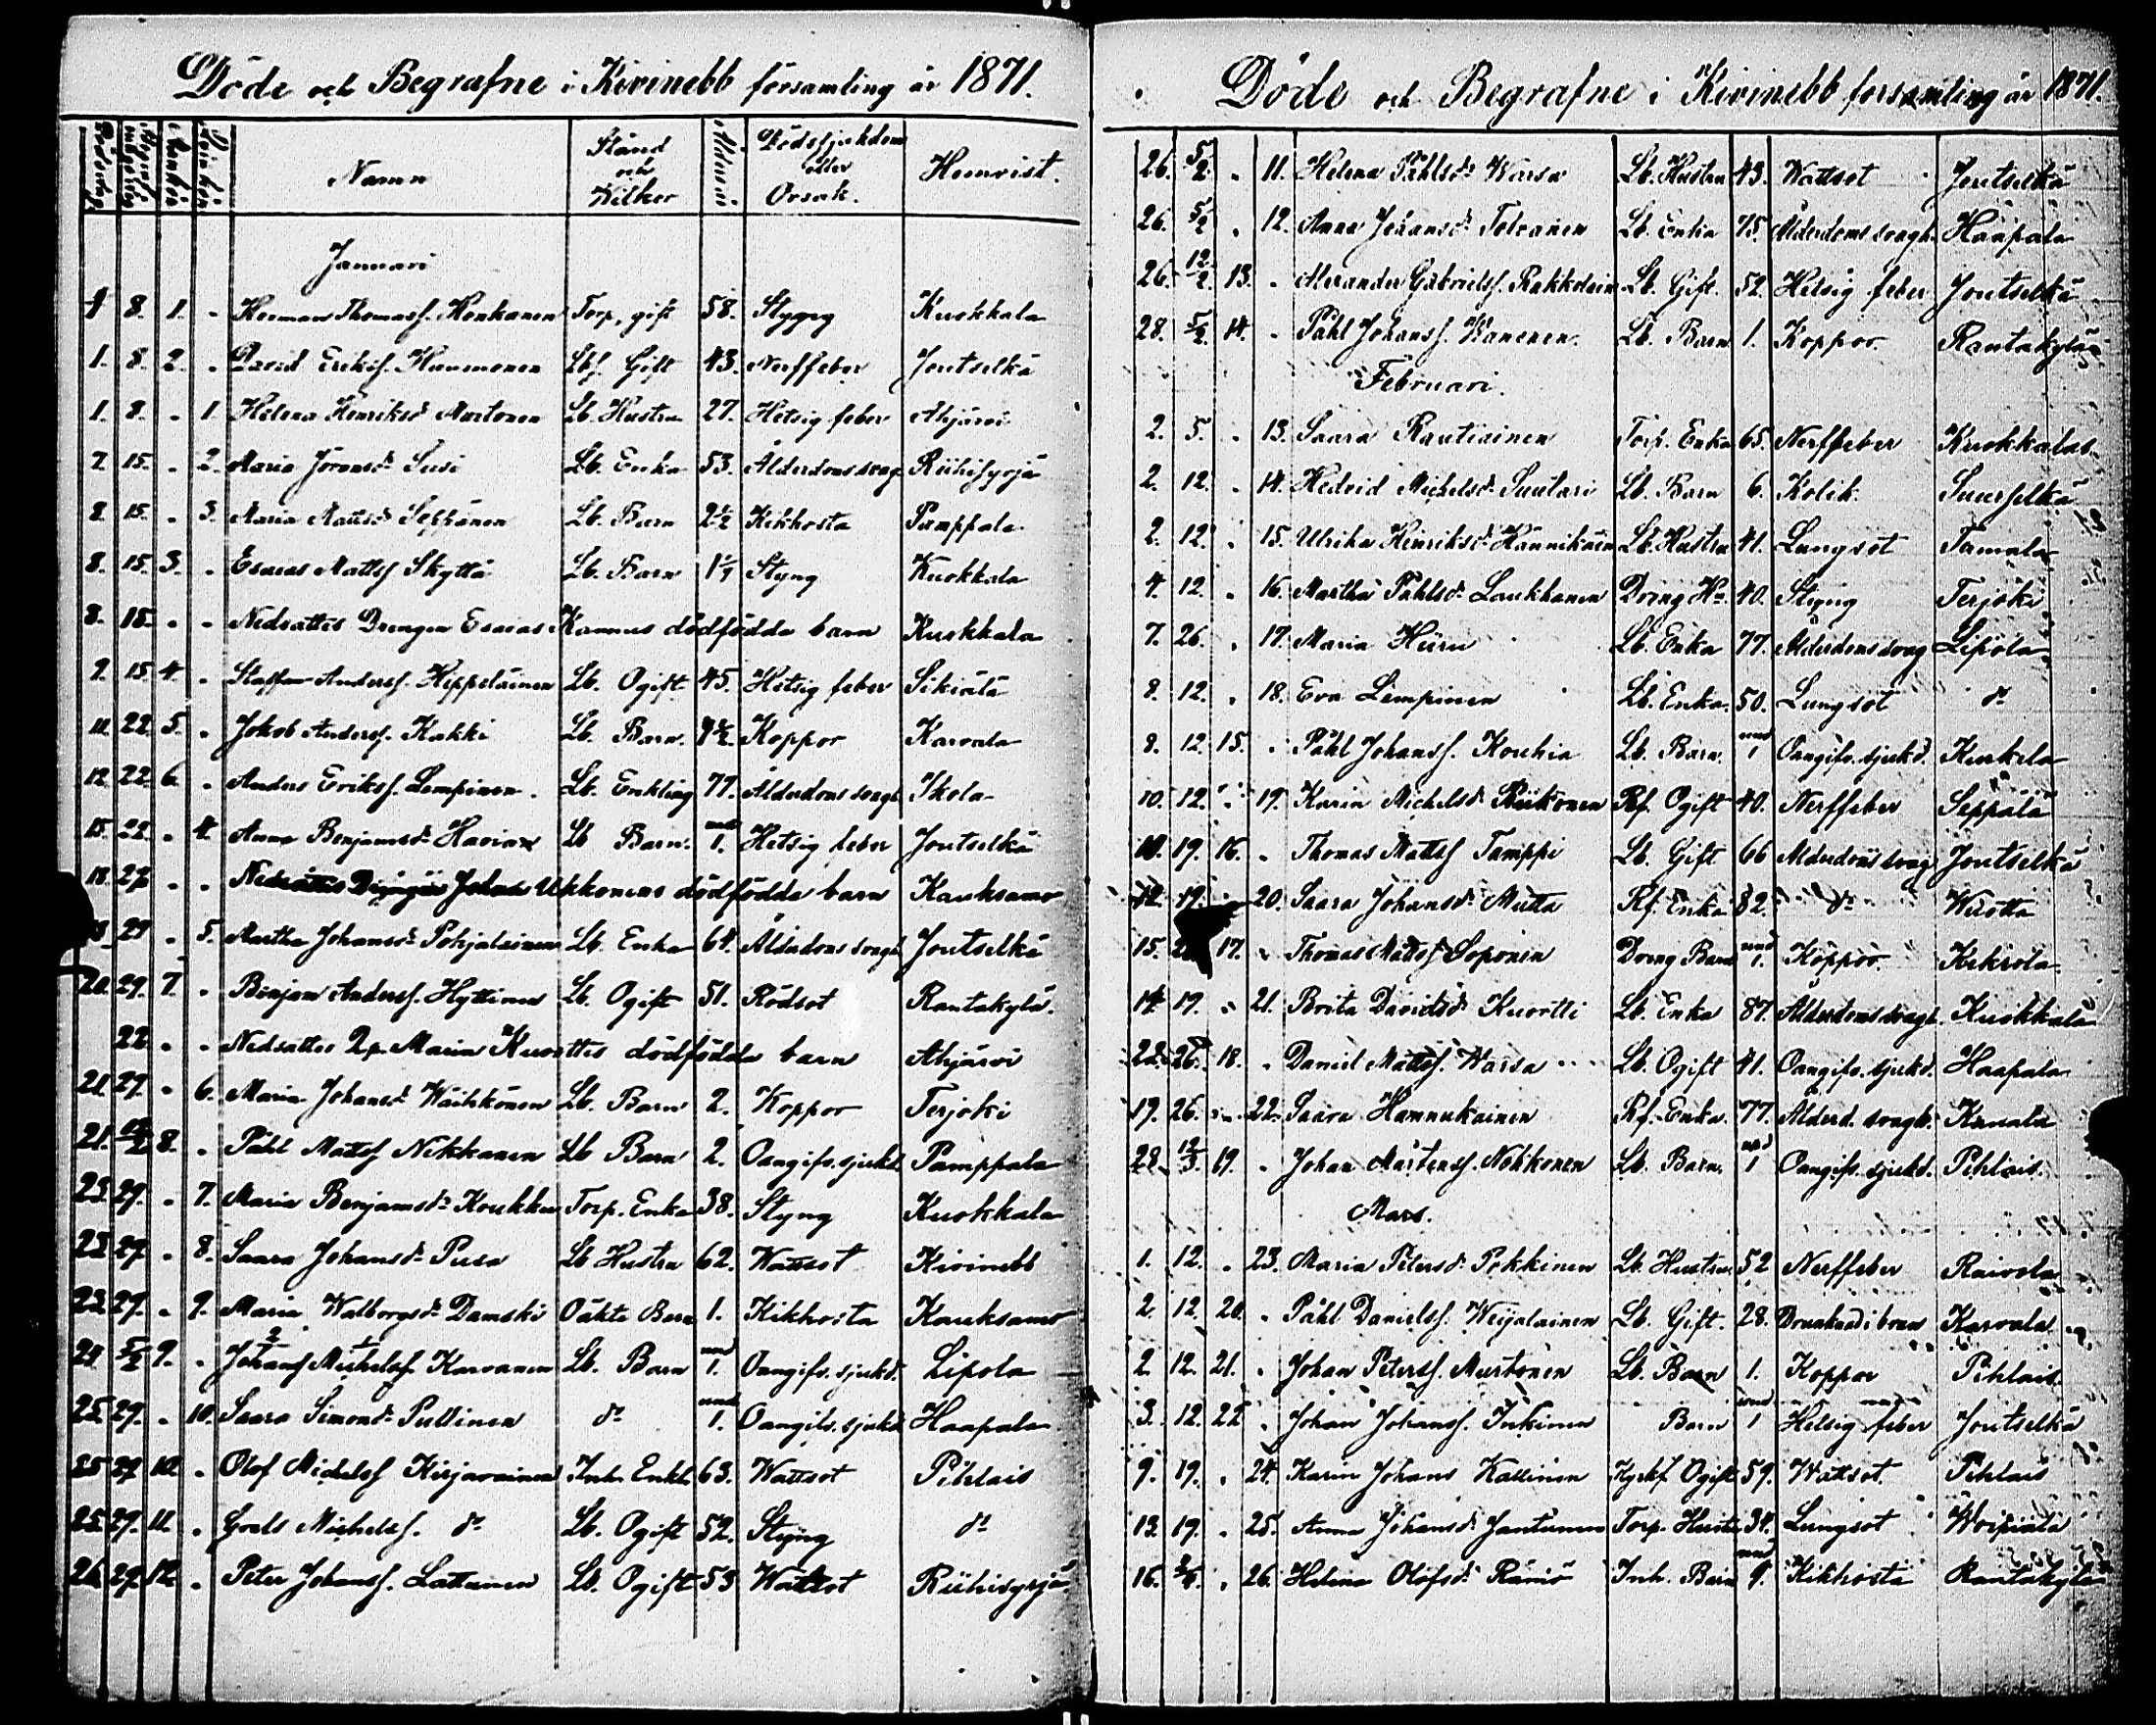 Döde och Begrafne i Kivinebb församling år 1871.
Namn Stånd och Wilkor Ålder Dödssjukdom eller Orsak. Hemvist.
Januari
1 8. 1. - Herman Thomass. Honkanen Torp. gift 58. Styng Kuokkala
1. 8. 2. - David Erikss. Hammonen Lbs. Gift 43. Nerffeber Joutselkä
1. 8. - 1. Helena Henriksdr Mustonen Lb. Hustru 27. Hetsig feber Ahjärvi
7. 15. - 2. Maria Göransdr Susi Lb. Enka 53. Ålderdomssvagh Riihisyrjä
8. 15. - 3. Maria Mattsdr Seppänen Lb. Barn 2½ Kikhosta Pamppala
8. 15. 3. - Esaias Matts Skyttä Lb. Barn 1¼ Styng Kuokkala
8. 15. - - Nedsattes Drengen Esaias Kannus dödfödda barn Kuokkala
9. 15. 4. - Staffan Anderss. Heppoläinen Lb. Ogift 45. Hetsig feber Sikiälä
11. 22. 5. - Jakob Anderss. Kakki Lb. Barn. 9½ Koppor Karvala
12. 22. 6. - Anders Erikss. Lempinen. Lb. Enkling 77. Ålderdoms svagh Ikola
15. 22. - 4. Anna Benjamsdr Haviax Lb Barn. mnd 1. Hetsig feber Joutselkä
18. 29 - - Nedsattes Johan Ukkonens dödfödda barn Kauksamo
18. 29 - 5. Martha Johansdr Pohjalainen Lb. Enka 64. Ålderdoms svagh Joutselkä
20. 29. 7. - Benjam Anderss. Hyttinen Lb. Ogift 51. Rödsot Rantakylä.
22 - - Nedsattes Maria Kuorttis dödfödda barn Ahjärvi
21. 29. - 6. Maria Johansdr Wäihkönen Lb. Barn 2. Koppor Terjoki
21. 12/2 8. - Påhl Matts Nikkanen Lb Barn 2. Oangifv. sjukd. Pamppala
23. 29. - 7. Maria Benjamsdr Koukku Torp. Enka 38. Styng Kuokkala
23. 29. - 8. Saara Johansdr Pusa Lb Hustru 62. Wattsot Kivinebb
23. 29. - 9. Maria Walborgsdr Damski Oäkta Barn 1. Kikhosta Kauksamo
24 5/2 9. - Johans Michelss. Karvanen Lb. Barn mnd 1. Oangifv. sjukd. Lipola
25. 29. - 10. Saara Simonsdr Pullinen dr mnd 1. Oangifv. sjukd Haapala
25 29 10. - Olof Michelss Kirjavainen Inh. Enkl. 63. Wattsot Pihlais
25. 29. 11. - Göels Michelss. dr Lb. Ogift 52. Styng dr
26. 29. 12. - Peter Johanss. Lattunen Lb. Ogift 53 Wattsot Riihisyrjä
Döde och Begrafne i Kivinebb församling år 1871.
26. 5/2. - 11. Helena Påhlsdr Warsa Lb. Hustru 43. Wattsot Joutselkä
26. 5/2 - 12. Anna Johansdr Tolvanen Lb. Enka 75. Ålderdoms svagh. Haapala
26. 12/2. 13. - Alexander Gabrielss. Rakkolain Lb. Gift. 52. Hetsig feber Joutselkä
28. 5/2. 14. - Påhl Johanss. Kanenen. Lb. Barn 1. Koppor Rantakylä
Februari.
2. 5. - 13. Saara Rautiainen Torp. Enka 65. Nerffeber Kuokkalas
2. 12. - 14. Hedvid Michelsdr Suutari Lb. Barn 6. Kolik. Suurselkä
2. 12. - 15. Ulrika Henriksdr Hännikäin Lb. Hustru 41. Lungsot Tamala
4. 12. - 16. Martha Påhlsdr Laukkanen Dreng Hu. 40. Styng Terjoki
7. 26. - 17. Maria Hiiru Lb. Enka 77. Ålderdoms svagh Lipola
8. 12. - 18. Eva Lempinen Lb. Enka. 50. Lungsot dr
8. 12. 15. - Påhl Johanss. Kouhia Lb. Barn. mnd 1 Oangifv. sjukd. Kuokela
10. 12. - 19. Karin Michelsdr Piikonen Rf. Ogift 40. Nerffeber Seppälä
10. 19. 16. - Thomas Matts Tamppi Lb. Gift 66 Ålderdoms svagh Joutselkä
12. 19. - 20. Saara Johansdr Mutta Rf. Enka 82. dr Wuotta
15. 17. - Thomas Matts Soponen Dreng Barn mnd 1. Koppor Kekrola
14. 19. - 21. Brita Davidsdr Kuortti Lb. Enka 87. Ålderdoms svagh. Kuokkala
22. 26. 18. - Daniel Mattss. Warsa Lb. Ogift 41. Oangifv. sjukd. Haapala
19. 26. - 22. Saara Hannukainen Rf. Enka. 77. Ålderd. svagh. Karvala
28. 12/3. 19. - Johan Mårtenss. Nokkonen Lb. Barn. mnd 1 Oangifv. sjukd. Pihlais.
Mars.
1. 12. - 23. Maria Petersdr Pokkinen Lb. Hustru 52 Nerffeber Raivola
2. 12. 20. - Påhl Danielss. Weijalainen Lb. Gift. 28. Drunknad i brunn Karvala
2. 12. 21. - Johan Peterss. Mustonen Lb. Barn 1. Koppor Pihlais.
3. 12. 22 - Johan Johanss. Inkinen Barn mnd 1 Hetsig feber Joutselkä
9. 19. - 24. Karin Johans Kallinen Ogift 59. Wattsot. Pihlais
13. 19. - 25. Anna Johansdr Jantunen Torp. Hustr 34. Lungsot Woipiala
16. 2/4. - 26. Helena Olofsdr Räniö Inh. Barn mnd 9. Kikhosta Rantakylä